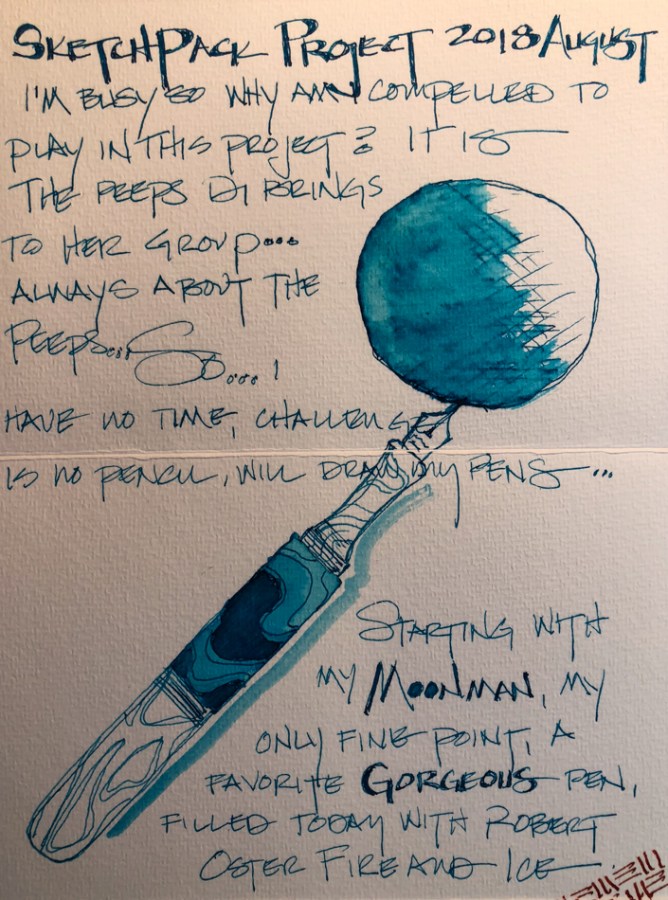 SKETCHPACK PROJECT 2018 AUGUST
I'M BUSY SO WHY AM I COMPELLED TO
PLAY IN THIS PROJECT? IT IS
THE PEEPS DI BRINGS
TO HER GROUP...
ALWAYS ABOUT THE
PEEPS... SO....I
HAVE NO TIME, CHALLENGE
IS NO PENCIL, WILL DRAW MY PENS...
STARTING WITH
MY MOONMAN, MY
ONLY FINE POINT, A
FAVORITE GORGEOUS PEN,
FILLED TODAY WITH ROBERT
OSTER FIRE AND ICE